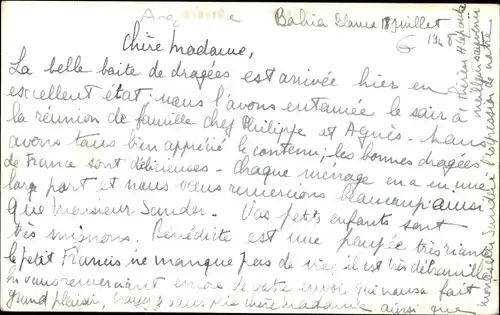 Bahia Blanca 18 juillet
Chère Madame,
La belle boite de dragées est arrivée hier en
excellent état. nous l'avons entamée le soir à
la réunion de famille chez Philippe et Agnès. nous
avons tous bien apprécié le contenu; les bonnes dragées
de France sont délicieuses. Chaque ménage en a eu une
large part et nous vous remercions beaucoup ainsi
que Monsieur Sander. Vos petits enfants sont
très mignons. Bénédicte est une poupée très riante
le petit Francis ne manque pas de vie; il est très débrouillé
En vous remerciant encore de votre envoi qui nous a fait
grand plaisir, croyez je vous prie chère madame ainsi que
monsieur Sander à l'expression de notre
meilleur souvenir